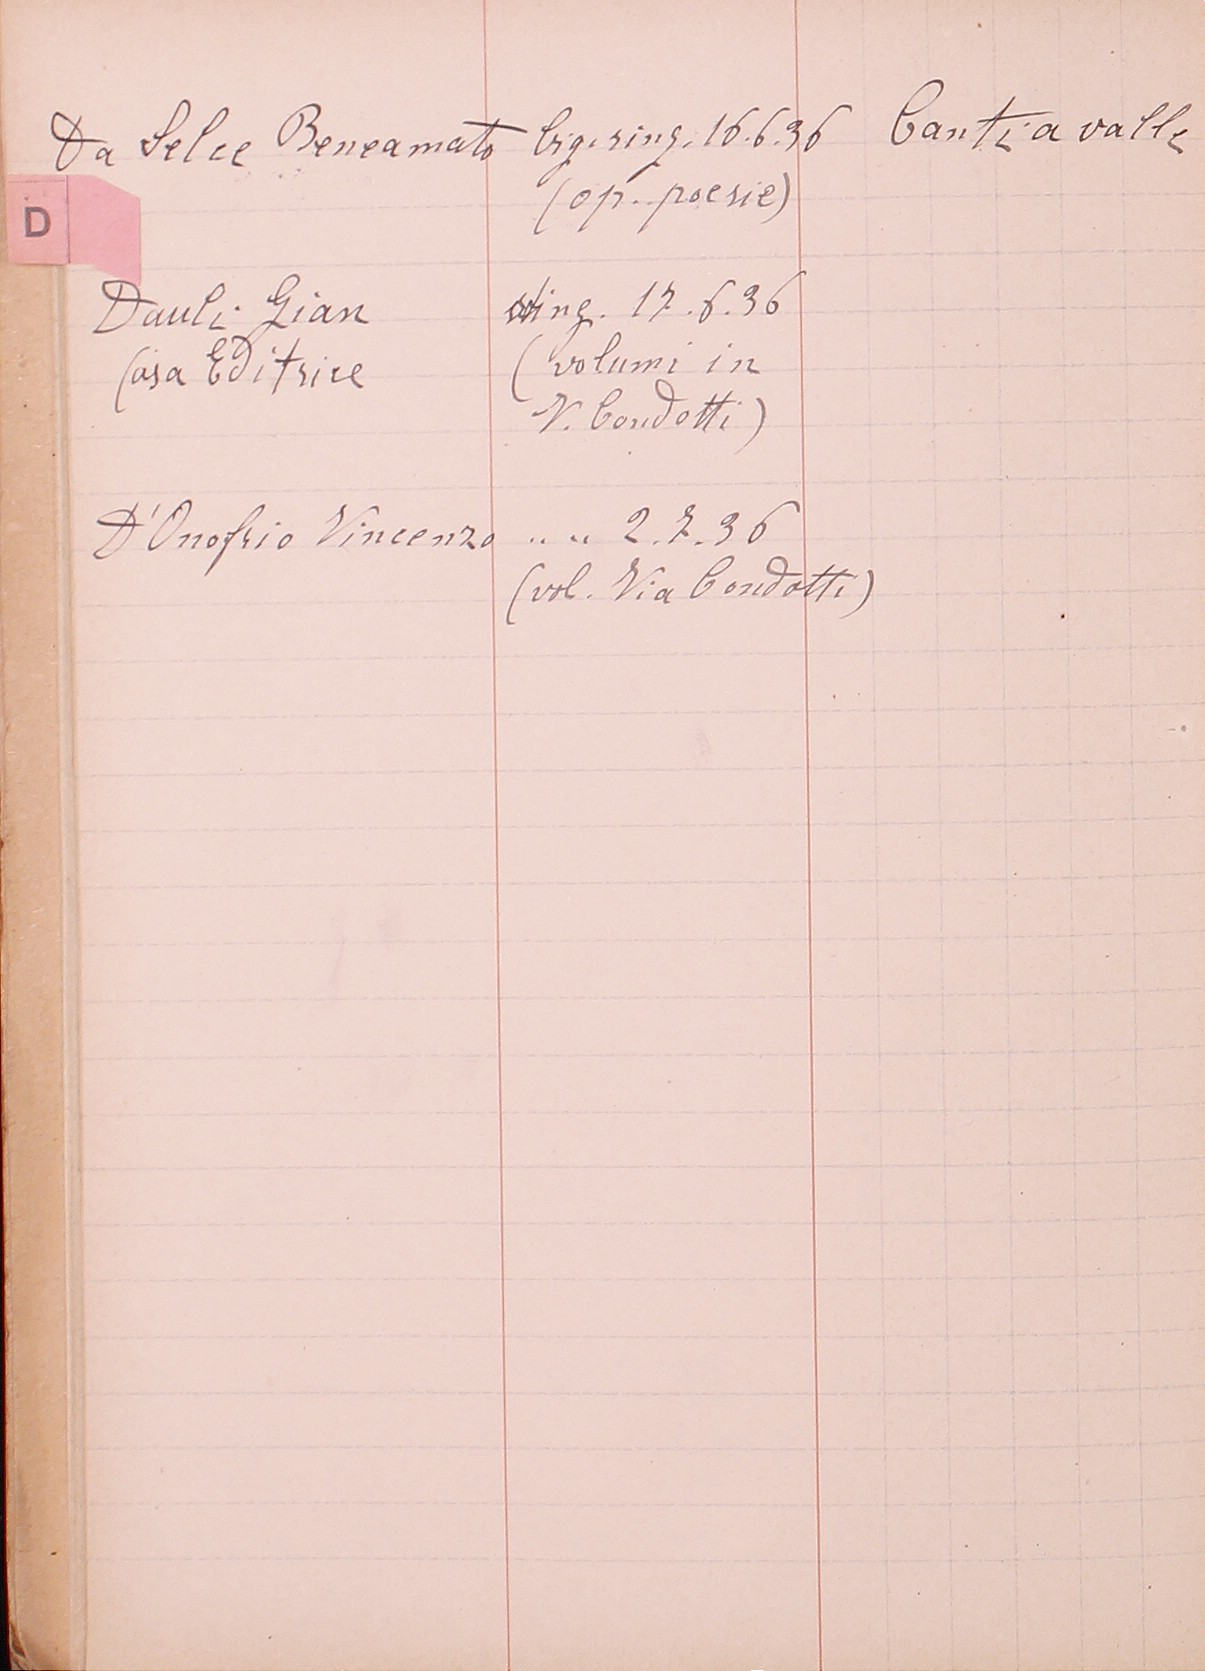 Da Selce Beneamato big. ring. 16.6.36 Canti a valle
(op. poesie)
D
Dauli Gian ring. 17.6.36
Casa Editrice (volumi in
V. Condotti)
D'Onofrio Vincenzo " " 2.7.36
(vol. Via Condotti)